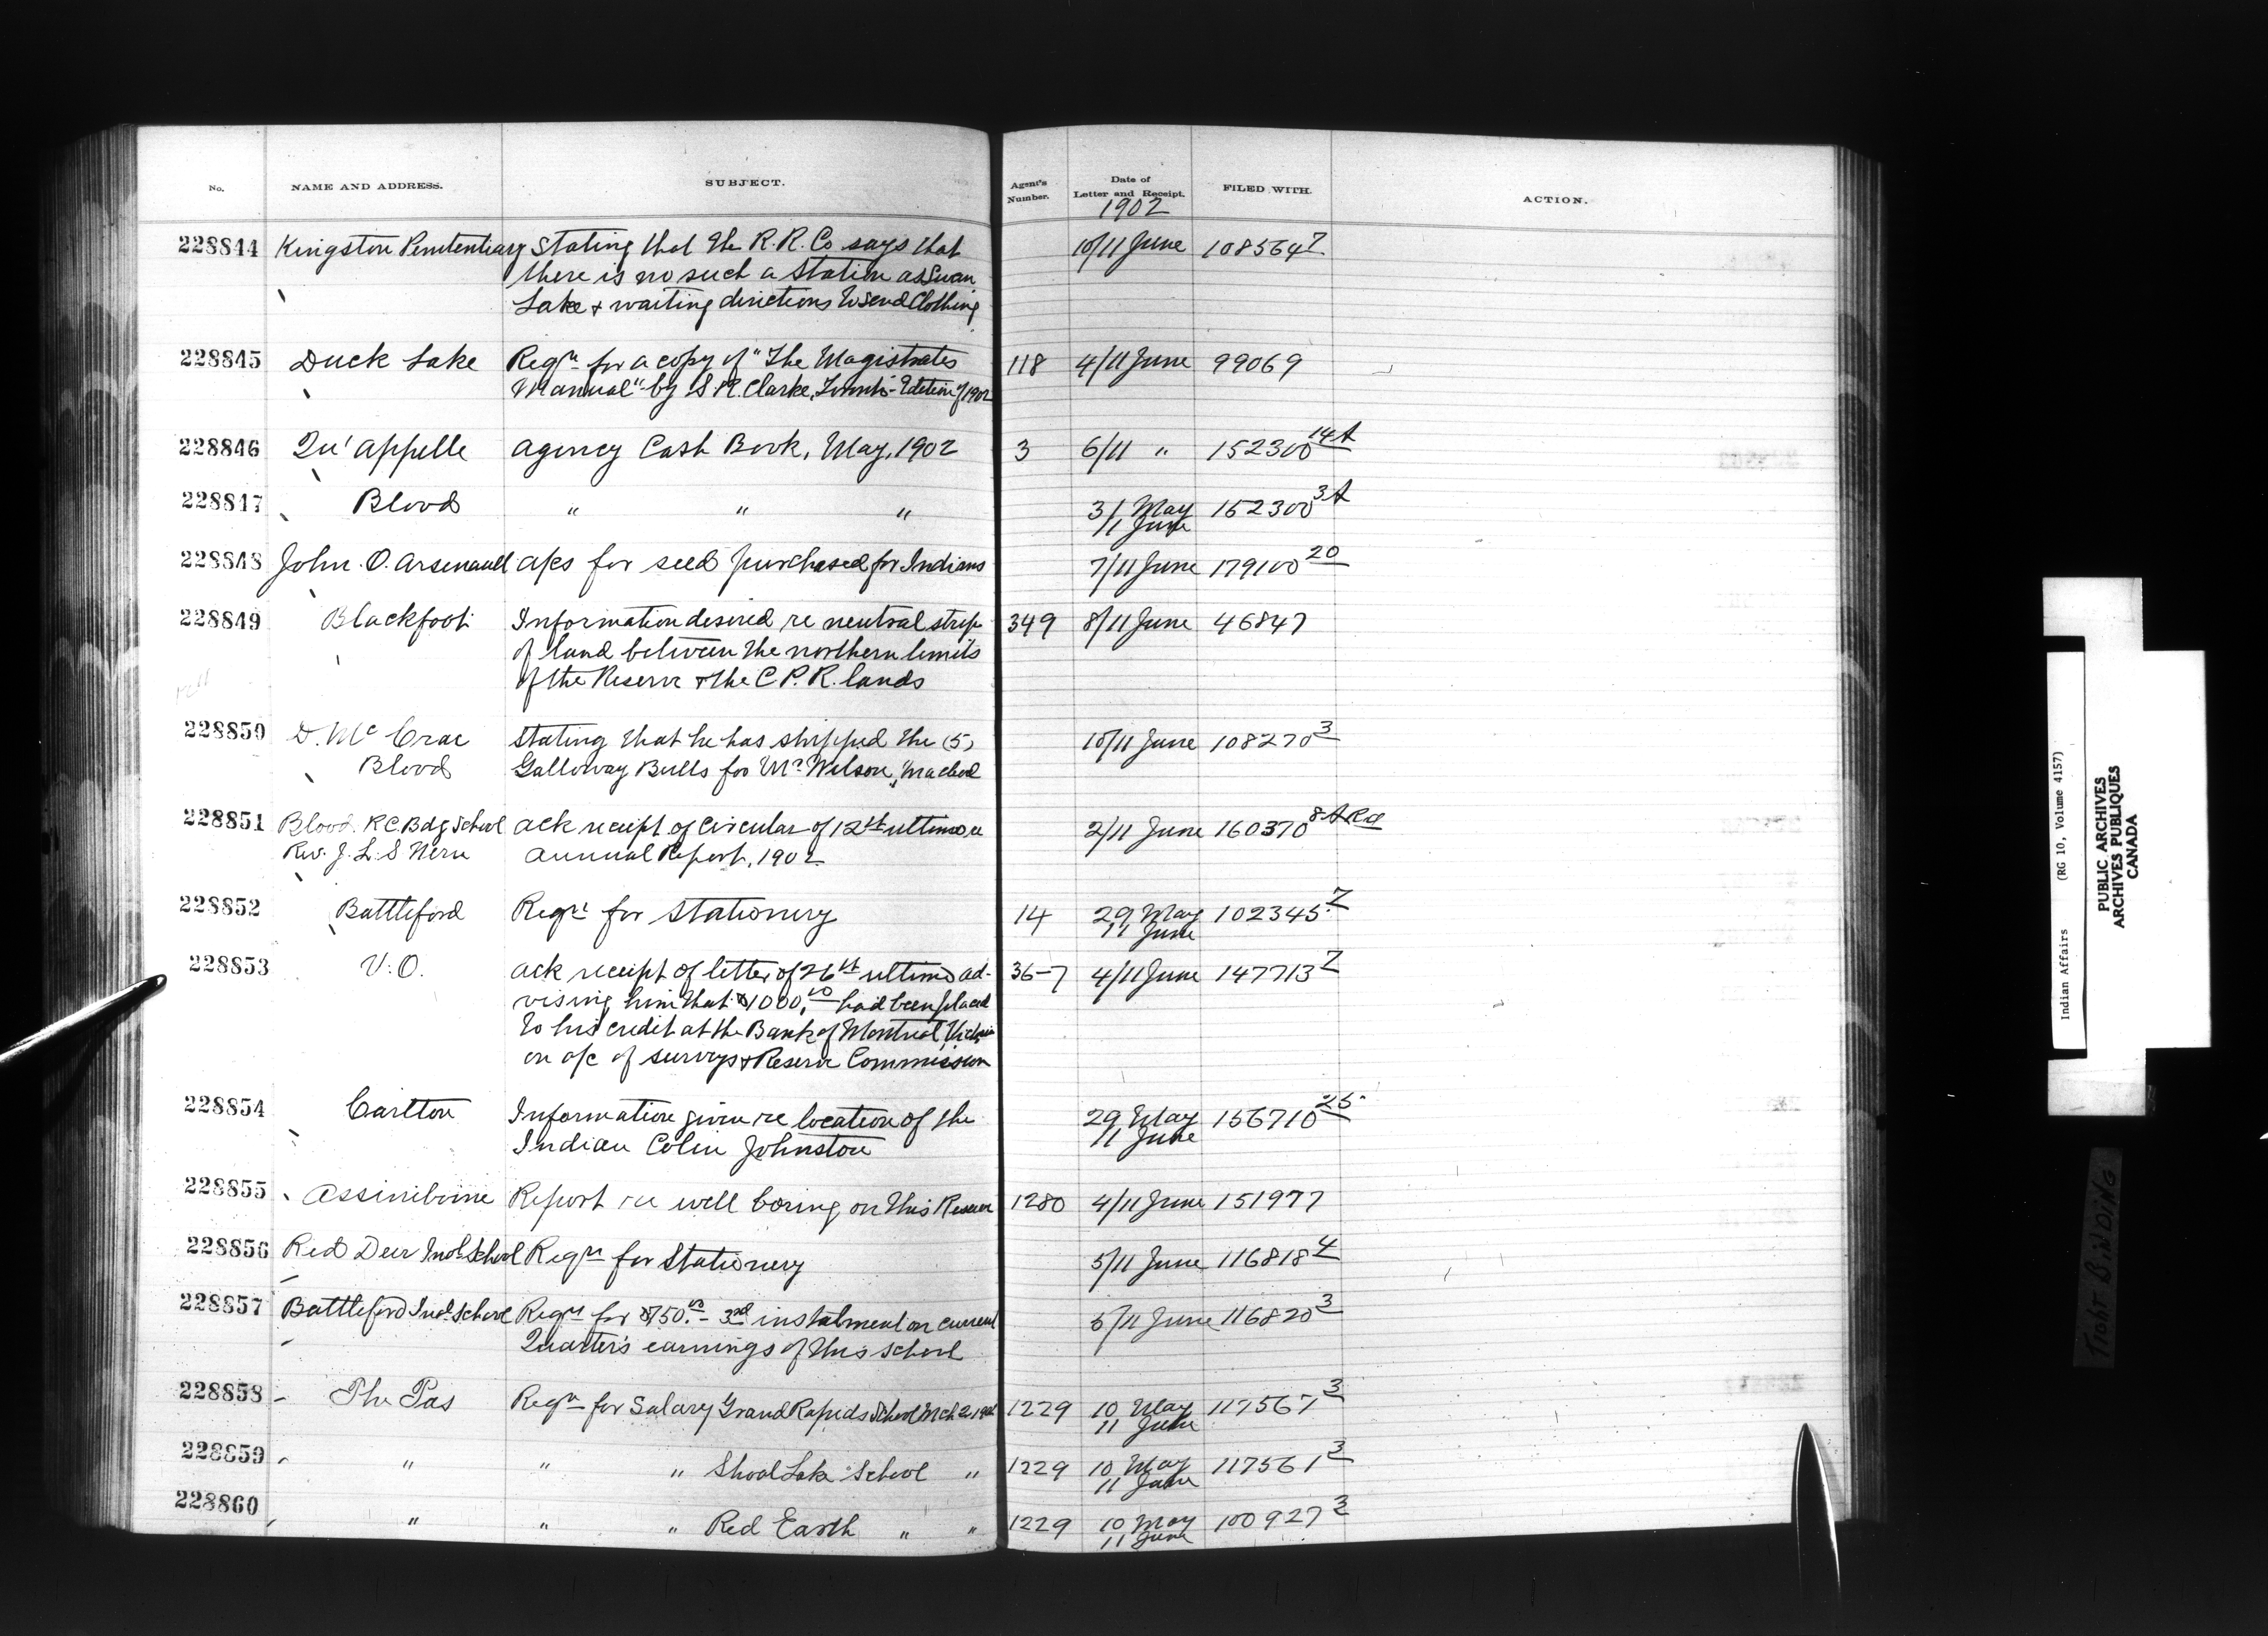 No. NAME AND ADDRESS. SUBJECT. Agent's Number. Date of Letter and Receipt. FILED WITH. ACTION.
1902
228844 Kingston Penitentiary Stating that the R. R. Co says that 10/11 June 108564 7
there is no such a station as Swan
Lake & waiting directions to send Clothing
228845 Duck Lake Reqn for a copy of "The Magistrates 118 4/11 June 99069
Manual" by S. R. Clarke, Toronto - Edition of 1902
228846 Qu'appelle Agency Cash Book, May, 1902 3 6/11 " 152300 14A
228847 Blood " " " 31 May 152300 3A
11 June
228848 John. O. Arsenault a/cs for seed purchased for Indians 7/11 June 179100 20
228849 Blackfoot Information desired re neutral strip 349 8/11 June 46847
of land between the northern limits
of the Reserve & the C. P. R. lands
228850 D. McCrae Stating that he has shipped the (5) 10/11 June 108270 3
Blood Galloway Bulls for Mr Wilson, Macleod
228851 Blood R C Bdg School Ack receipt of Circular of 12th ultimo re 2/11 June 160370 8A
Rev. J. L. S Annual Report, 1902
228852 Battleford Reqn for Stationery 14 29 May 102345 7
11 June
228853 V. O. Ack receipt of letter of 26th ultimo ad- 36-7 4/11 June 147713 7
vising him that $1000.00 had been placed
to his credit at the Bank of Montreal, Victoria
on a/c of surveys & Reserve Commission
228854 Carlton Information given re location of the 29 May 156710 25
Indian Colin Johnston 11 June
228855 Assiniboine Report re well boring on this Reserve 1280 4/11 June 151977
228856 Red Deer Indl School Reqn for Stationery 5/11 June 116818 4
228857 Battleford Indl. School Reqn for $750.00 - 3rd instalment on current 5/11 June 116820 3
Quarter's earnings of this school
228858 The Pas Reqn for Salary Grand Rapids School Mch 2 1902 1229 10 May 117567 3
11 June
228859 " " " Shoal Lake School " 1229 10 May 117561 3
11 June
228860 " " " Red Earth " " 1229 10 May 100927 3
11 June
Indian Affairs (RG 10, Volume 4157)
PUBLIC ARCHIVES
ARCHIVES PUBLIQUES
CANADA
TIGHT BINDING